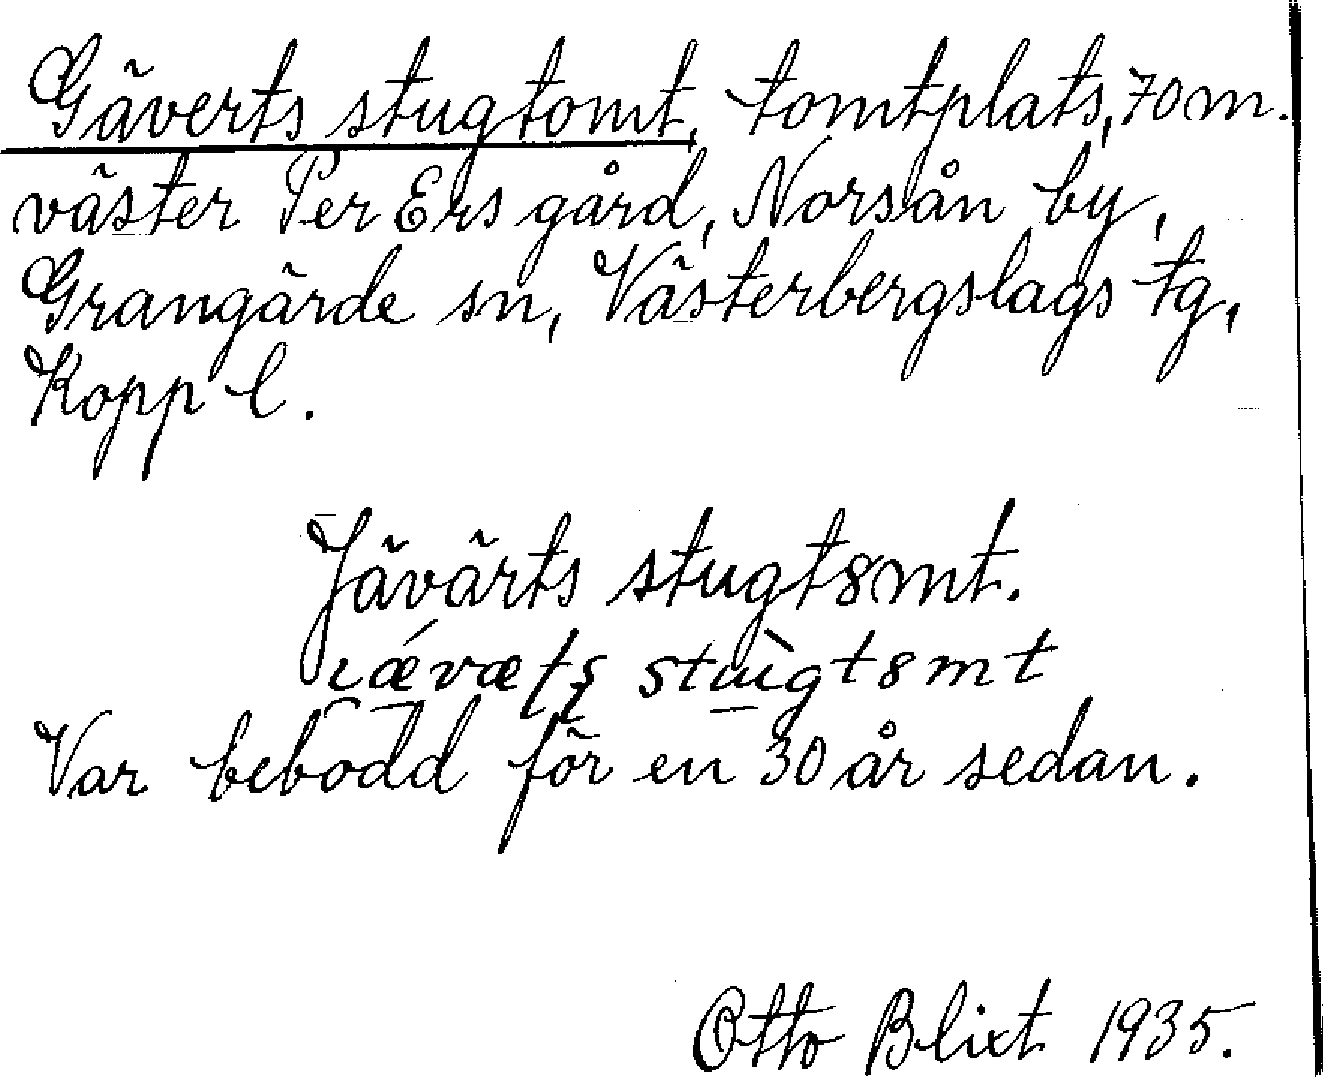 Gäverts stugtomt, tomtplats, 70 m.
väster Per Ers gård, Norsån by,
Grangärde sn, Västerbergslags tg,
Kopp l.
Jävärts stugt8mt.
stùgt8mt
Var bebodd för en 30 år sedan.
Otto Blixt 1935.